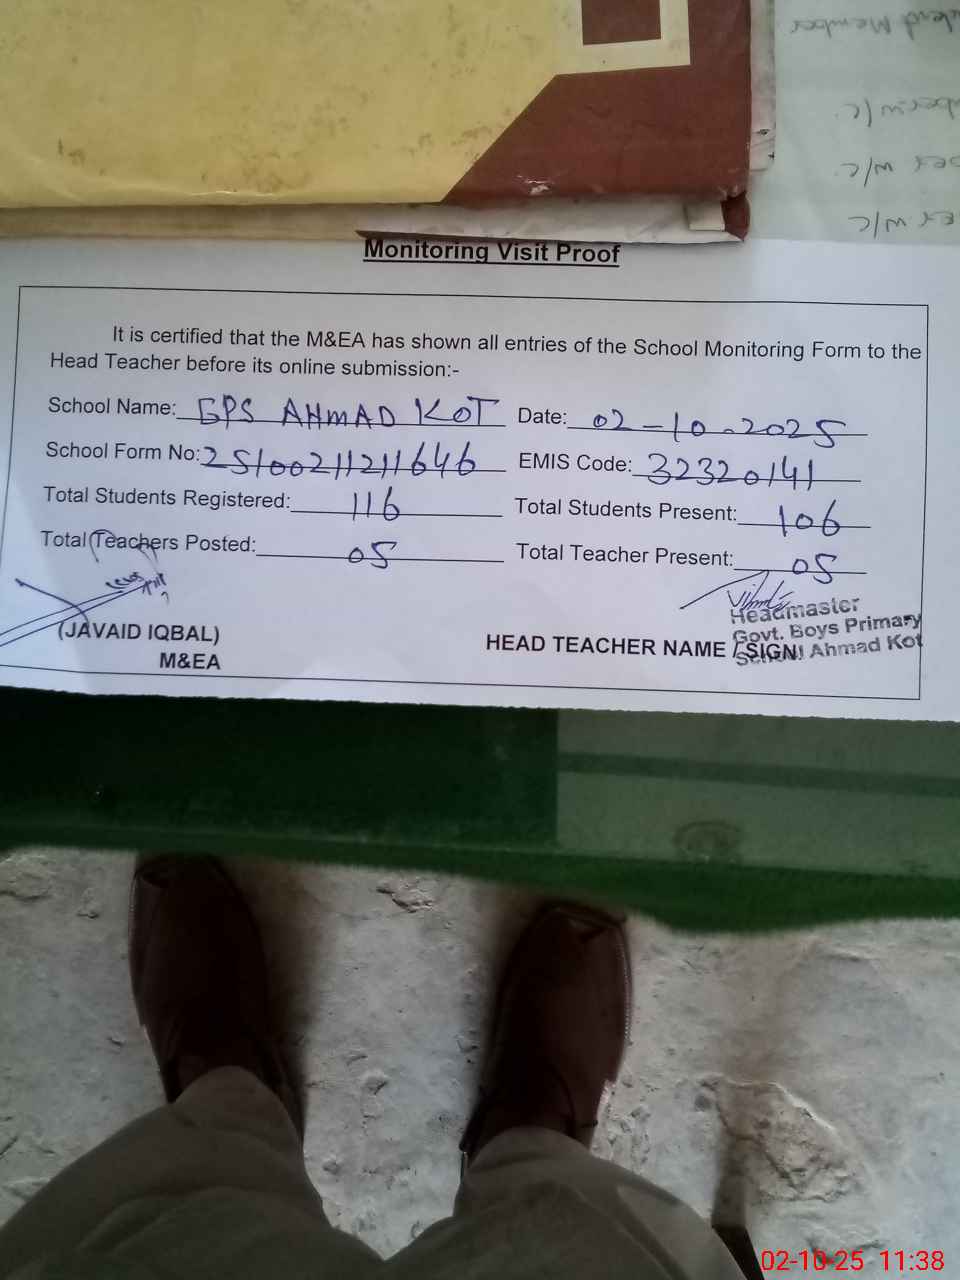 Member
w/c
w/c
w/c
Monitoring Visit Proof
It is certified that the M&EA has shown all entries of the School Monitoring Form to the
Head Teacher before its online submission:-
School Name: GPS AHMAD KOT Date: 02-10-2025
School Form No: 25100211211646 EMIS Code: 32320141
Total Students Registered: 116 Total Students Present: 106
Total Teachers Posted: 05 Total Teacher Present: 05
Headmaster
Govt. Boys Primary
School Ahmad Kot
(JAVAID IQBAL) HEAD TEACHER NAME / SIGN
M&EA
02-10-25 11:38